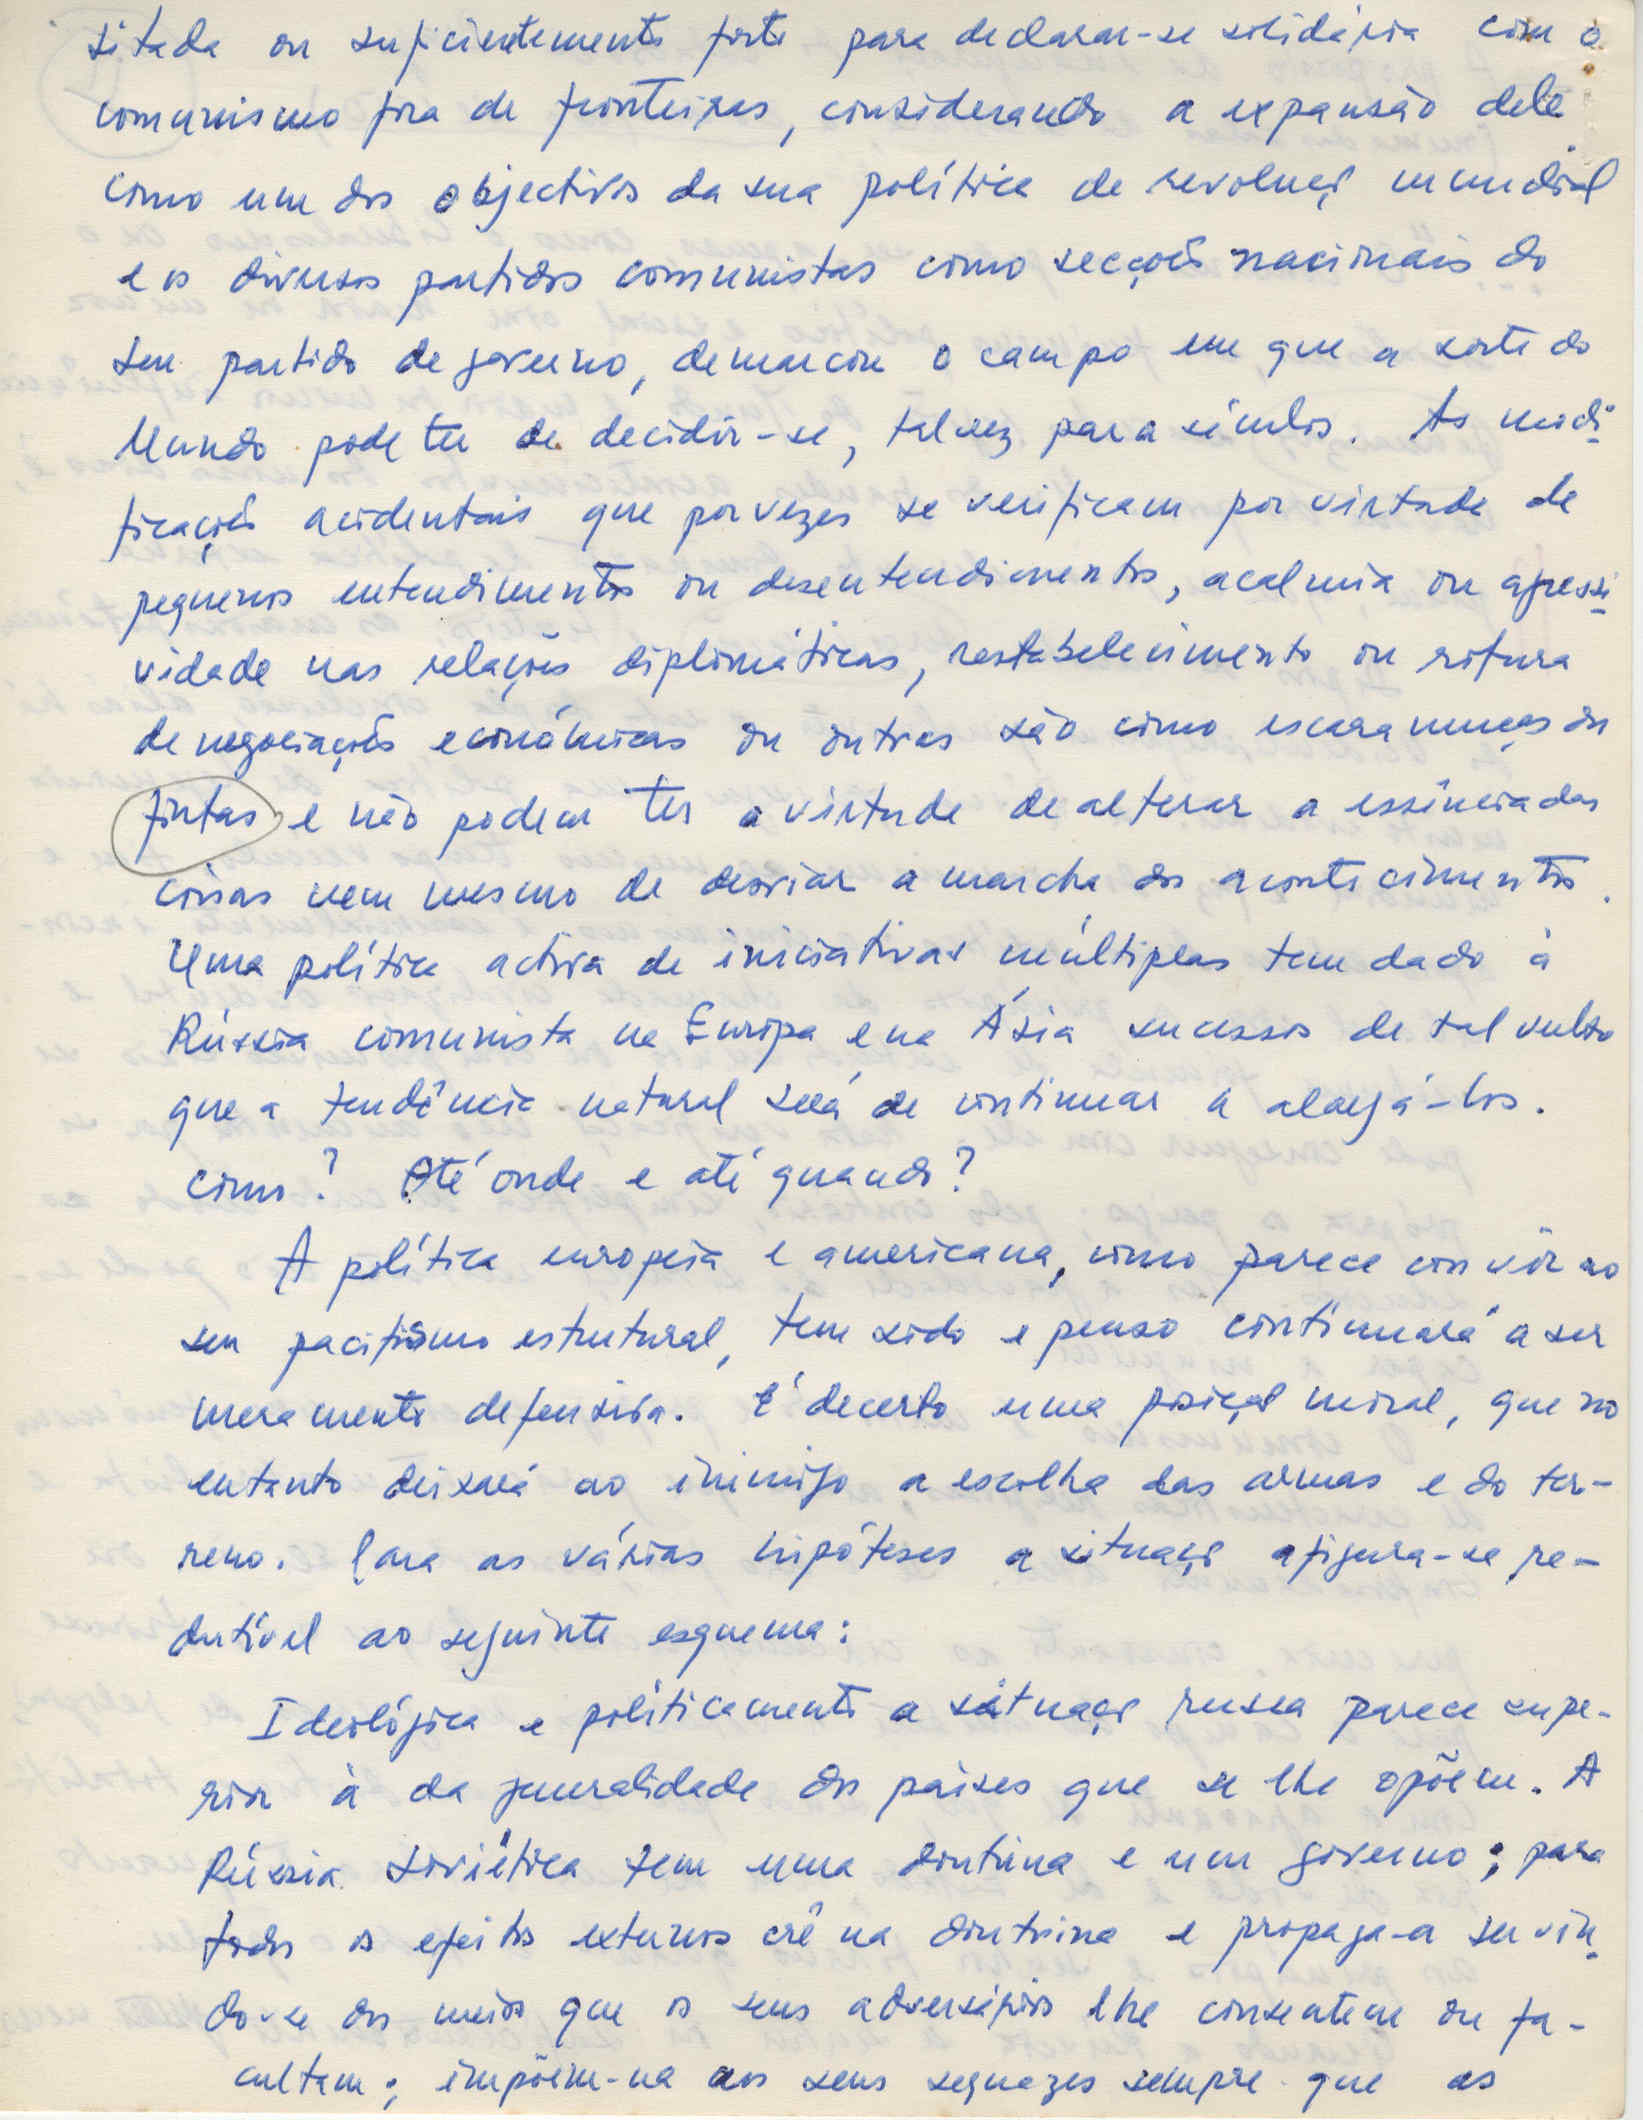 sitada ou suficientemente forte para declarar-se solidária com o
comunismo fora de fronteiras, considerando a expansão dele
como um dos objectivos da sua política de revolução mundial
e os diversos partidos comunistas como secções nacionais do
seu partido de governo, demarcou o campo em que a sorte do
Mundo pode ter de decidir-se, talvez para séculos. As modi-
ficações acidentais que por vezes se verificam por virtude de
pequenos entendimentos ou desentendimentos, acalmia ou agressi-
vidade nas relações diplomáticas, restabelecimento ou rotura
de negociações económicas ou outras são como escaramuças ou
fintas e não podem ter a virtude de alterar a essência das
coisas nem mesmo de desviar a marcha dos acontecimentos.
Uma política activa de iniciativas múltiplas tem dado à
Rússia comunista na Europa e na Ásia sucessos de tal vulto
que a tendência natural será de continuar a alargá-los.
Como? Até onde e até quando?
A política europeia e americana, como parece convir ao
seu pacifismo estrutural, tem sido e penso continuará a ser
meramente defensiva. É decerto uma posição moral, que no
entanto deixará ao inimigo a escolha das armas e do ter-
reno. Para as várias hipóteses a situação afigura-se re-
dutível ao seguinte esquema:
Ideológica e politicamente a situação russa parece supe-
rior à da generalidade dos países que se lhe opõem. A
Rússia Soviética tem uma doutrina e um governo; para
todos os efeitos externos crê na doutrina e propaga-a servin-
do-se dos meios que os seus adversários lhe consentem ou fa-
cultam; impõem-na aos seus sequazes sempre que as